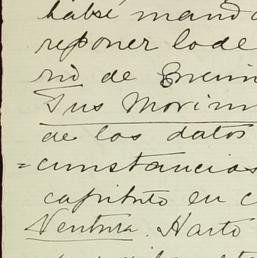 habsé mand
reponer lo de
rio de Encin
Sus Morim
de los datos
=cunstancias
capítulo en c
Ventura. Harto